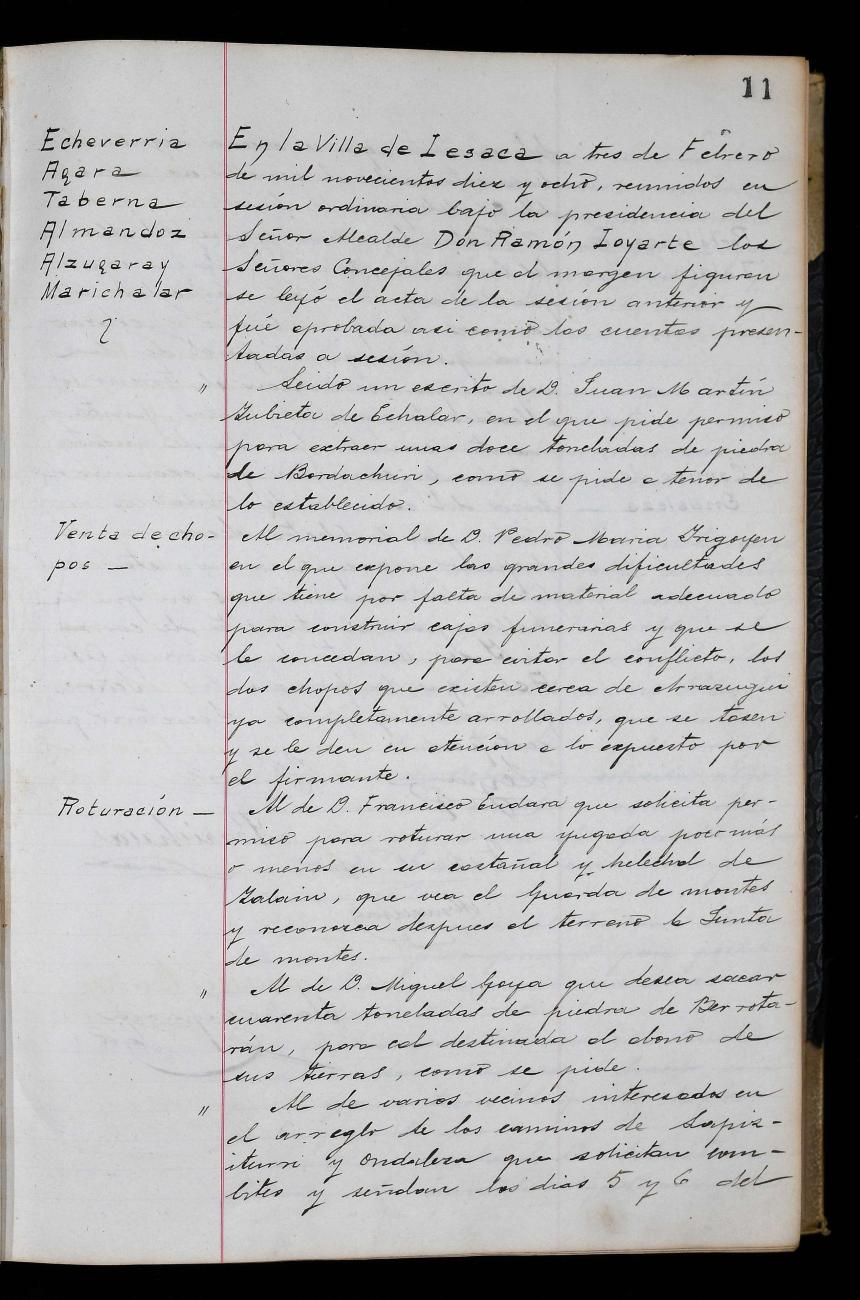 11
Echeverria
Agara
Taberna
Almandoz
Alzugaray
Marichalar
En la Villa de Lesaca a tres de Febrero
de mil novecientos diez y ocho, reunidos en
sesión ordinaria bajo la presidencia del
Señor Alcalde Don Ramón Ioyarte los
Señores Concejales que al margen figuran
se leyó el acta de la sesión anterior y
fué aprobada asi como las cuentas presen-
tadas a sesión.
" Leido un escrito de D. Juan Martín
Zubieta de Echalar, en el que pide permiso
para extraer unas doce toneladas de piedra
de Bordachuri, como se pide a tenor de
lo establecido.
Venta de cho-
pos —
Al memorial de D. Pedro Maria Irigoyen
en el que expone las grandes dificultades
que tiene por falta de material adecuado
para construir cajas funerarias y que se
le concedan, para evitar el conflicto, los
dos chopos que existen cerca de Arrazugui
ya completamente arrollados, que se tasen
y se le den en atención a lo expuesto por
el firmante.
Roturación —
Al de D. Francisco Endara que solicita per-
miso para roturar una yugada poco más
o menos en su castañal y helechal de
Zalain, que vea el Guarda de montes
y reconozca despues el terreno la Junta
de montes.
" Al de D. Miguel Goya que desea sacar
cuarenta toneladas de piedra de Berrota-
rán, para cal destinada al abono de
sus tierras, como se pide.
" Al de varios vecinos interesados en
el arreglo de los caminos de Lapiz-
iturri y Ondalasa que solicitan com-
bites y señalan los dias 5 y 6 del